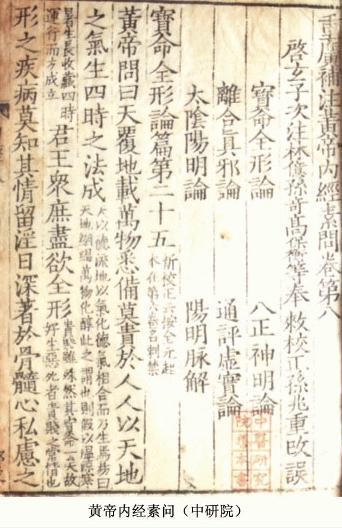 重廣補注黃帝內經素問卷第八
啓玄子次注林億孫奇高保衡等奉敕校正孫兆重改誤
寶命全形論　八正神明論
離合眞邪論　通評虛實論
太陰陽明論　陽明脉解
寶命全形論篇第二十五新校正云按全元起本在第六卷名刺禁
黃帝問曰天覆地載萬物悉備莫貴於人人以天地
之氣生四時之法成天以德流地以氣化德氣相合而乃生焉易曰天地絪縕萬物化醇此之謂也則假以溫涼寒
暑生長收藏四時運行而方成立君王眾庶盡欲全形貴賤雖殊然其寶命一矣故好生惡死者貴賤之常情也
形之疾病莫知其情留淫日深著於骨髓心私慮之
中醫研究院
黄帝内经素问（中研院）